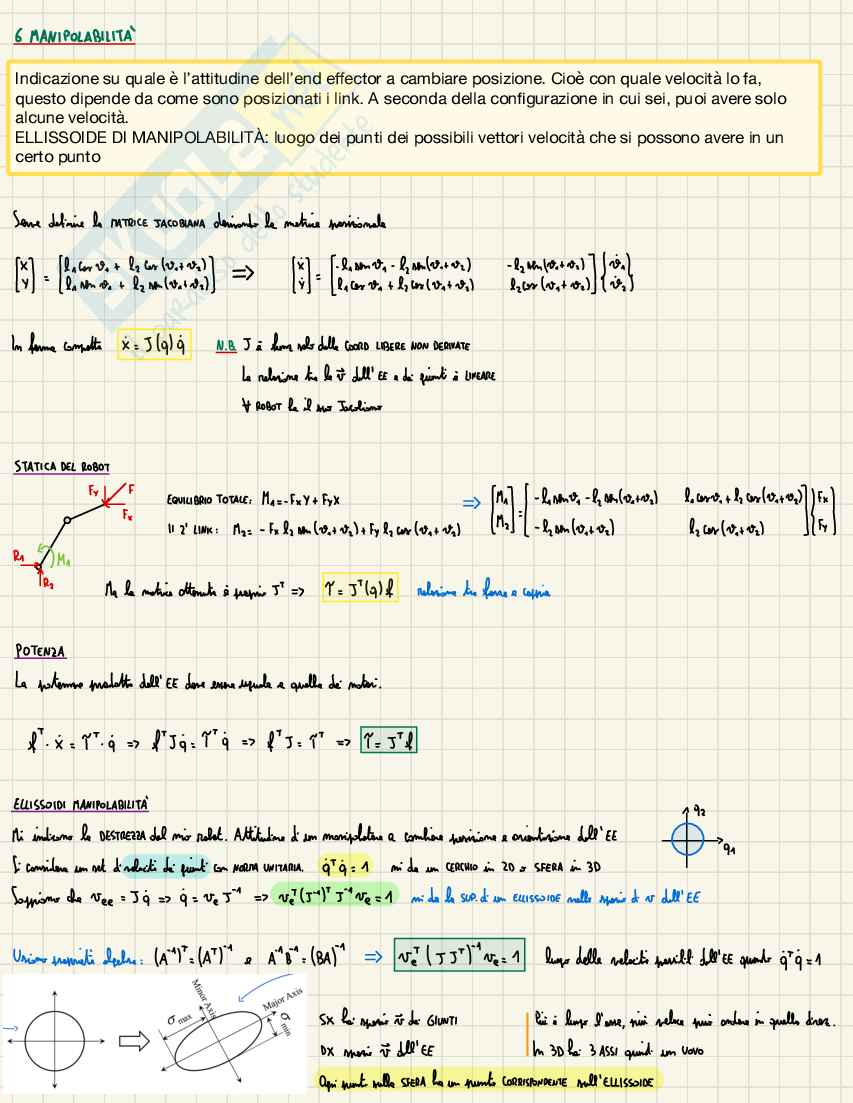 6 MANIPOLABILITÀ
Indicazione su quale è l'attitudine dell'end effector a cambiare posizione. Cioè con quale velocità lo fa,
questo dipende da come sono posizionati i link. A seconda della configurazione in cui sei, puoi avere solo
alcune velocità.
ELLISSOIDE DI MANIPOLABILITÀ: luogo dei punti dei possibili vettori velocità che si possono avere in un
certo punto
Serve definire la MATRICE JACOBIANA derivando la matrice posizionale
[x y] = [l₁ cos ϑ₁ + l₂ cos(ϑ₁+ϑ₂) l₁ sen ϑ₁ + l₂ sen(ϑ₁+ϑ₂)] => [ẋ ẏ] = [-l₁ sen ϑ₁ - l₂ sen(ϑ₁+ϑ₂) -l₂ sen(ϑ₁+ϑ₂) l₁ cos ϑ₁ + l₂ cos(ϑ₁+ϑ₂) l₂ cos(ϑ₁+ϑ₂)] {ϑ̇₁ ϑ̇₂}
In forma compatta ẋ = J(q) q̇ N.B. J è funz solo delle COORD LIBERE NON DERIVATE
La relazione tra la v⃗ dell'EE e dei giunti è LINEARE
∀ ROBOT ha il suo Jacobiano
STATICA DEL ROBOT
Fy F
Fx
EQUILIBRIO TOTALE: M₁ = -Fx y + Fy x => [M₁ M₂] = [-l₁ sen ϑ₁ - l₂ sen(ϑ₁+ϑ₂) l₁ cos ϑ₁ + l₂ cos(ϑ₁+ϑ₂) -l₂ sen(ϑ₁+ϑ₂) l₂ cos(ϑ₁+ϑ₂)] {Fx Fy}
2° LINK: M₂ = -Fx l₂ sen(ϑ₁+ϑ₂) + Fy l₂ cos(ϑ₁+ϑ₂)
R₁ M₁
R₂
Ma la matrice ottenuta è proprio Jᵀ => τ = Jᵀ(q) f relazione tra forze e coppie
POTENZA
La potenza prodotta dell'EE deve essere uguale a quella dei motori.
fᵀ · ẋ = τᵀ · q̇ => fᵀ J q̇ = τᵀ q̇ => fᵀ J = τᵀ => τ = Jᵀ f
ELLISSOIDI MANIPOLABILITÀ
q₂
q₁
Mi indicano la DESTREZZA del mio robot. Attitudine d'un manipolatore a cambiare posizione e orientazione dell'EE
Si considera un set d velocità dei giunti con NORMA UNITARIA. q̇ᵀ q̇ = 1 mi da un CERCHIO in 2D o SFERA in 3D
Sappiamo che vee = J q̇ => q̇ = ve J⁻¹ => veᵀ (J⁻¹)ᵀ J⁻¹ ve = 1 mi da la SUP. d un ELLISSOIDE nello spazio d v dell'EE
Usiamo proprietà algebra: (A⁻¹)ᵀ = (Aᵀ)⁻¹ e A⁻¹B⁻¹ = (BA)⁻¹ => veᵀ (J Jᵀ)⁻¹ ve = 1 luogo delle velocità possibili dell'EE quando q̇ᵀ q̇ = 1
Minor Axis
Major Axis
σ max
σ min
SX ha spazio v⃗ dei GIUNTI
DX spazio v⃗ dell'EE
Più è lungo l'asse, più veloce può andare in quella direz.
In 3D ha 3 ASSI quindi un UOVO
Ogni punto sulla SFERA ha un punto CORRISPONDENTE sull'ELLISSOIDE